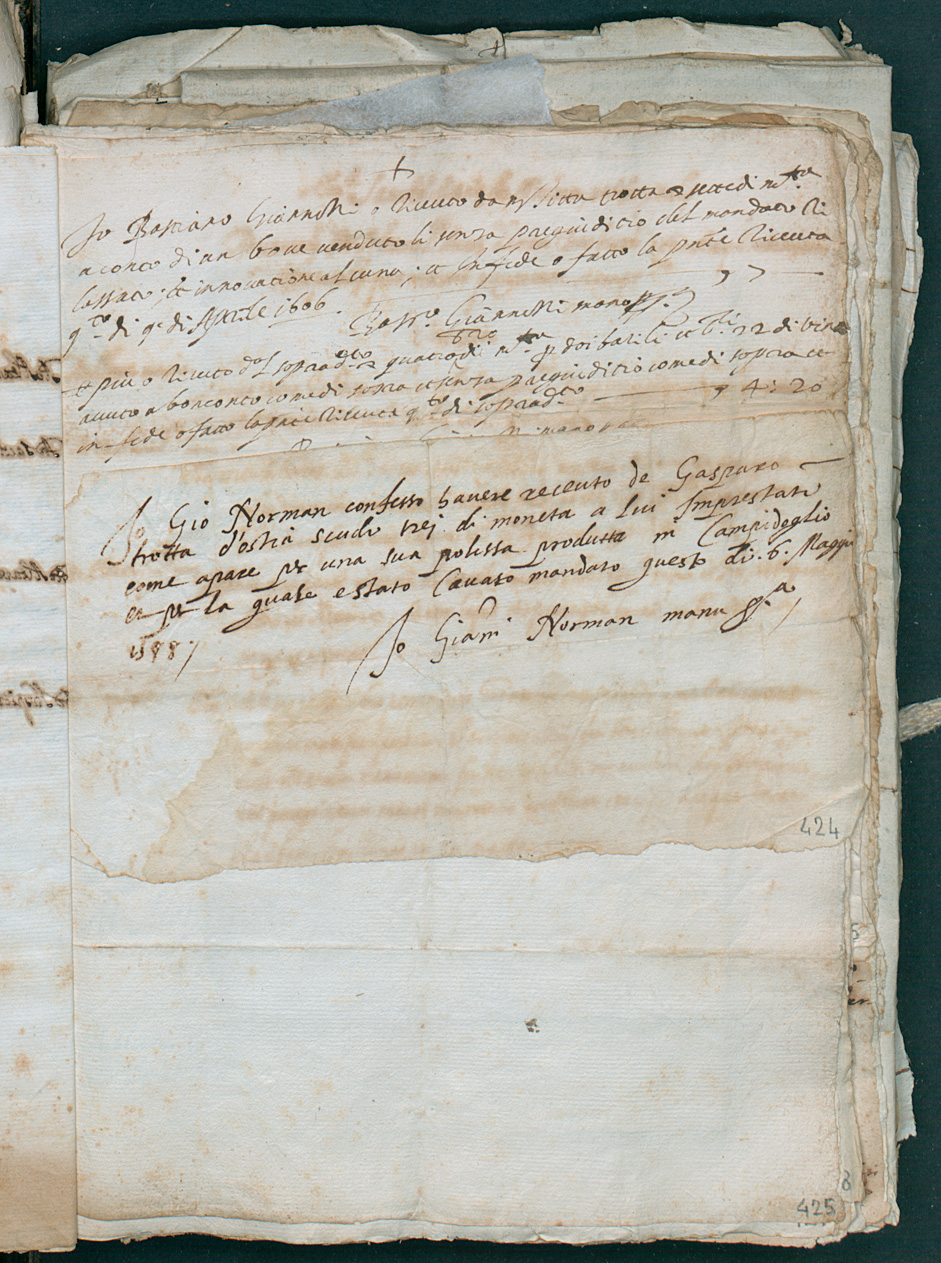 +
Io Bastiano Giannetti o riceuto da ms Titta trotta ∇ sette di mta
a conto di un bove vendutoli senza pregiuditio del mandato ri
lassato et innovatione alcuna; et in fede o fatto la pnte riceuta
qto di po di Aprile 1606. ∇ 7 —
Basto Giannetti mano ppa
et piu o riceuto dal sopradto ∇ quatro di mta p doi barili et bli 22 di vino
avuto a bonconto come di sopra et senza pregiuditio come di sopra et
in fede o fatto la pnte riceuta qto di sopradto — ∇ 4: 20
mano
Io Gio Norman confesso havere receuto de Gasparo
trotta d'ostia scudi trej di moneta a lui Imprestati
come apare pr una sua polissa produtta in Campidoglio
et pr la quale e stato Cavato mandato questo di. 6. Maggio
1588
Io Giani Norman manu ppa
424
425